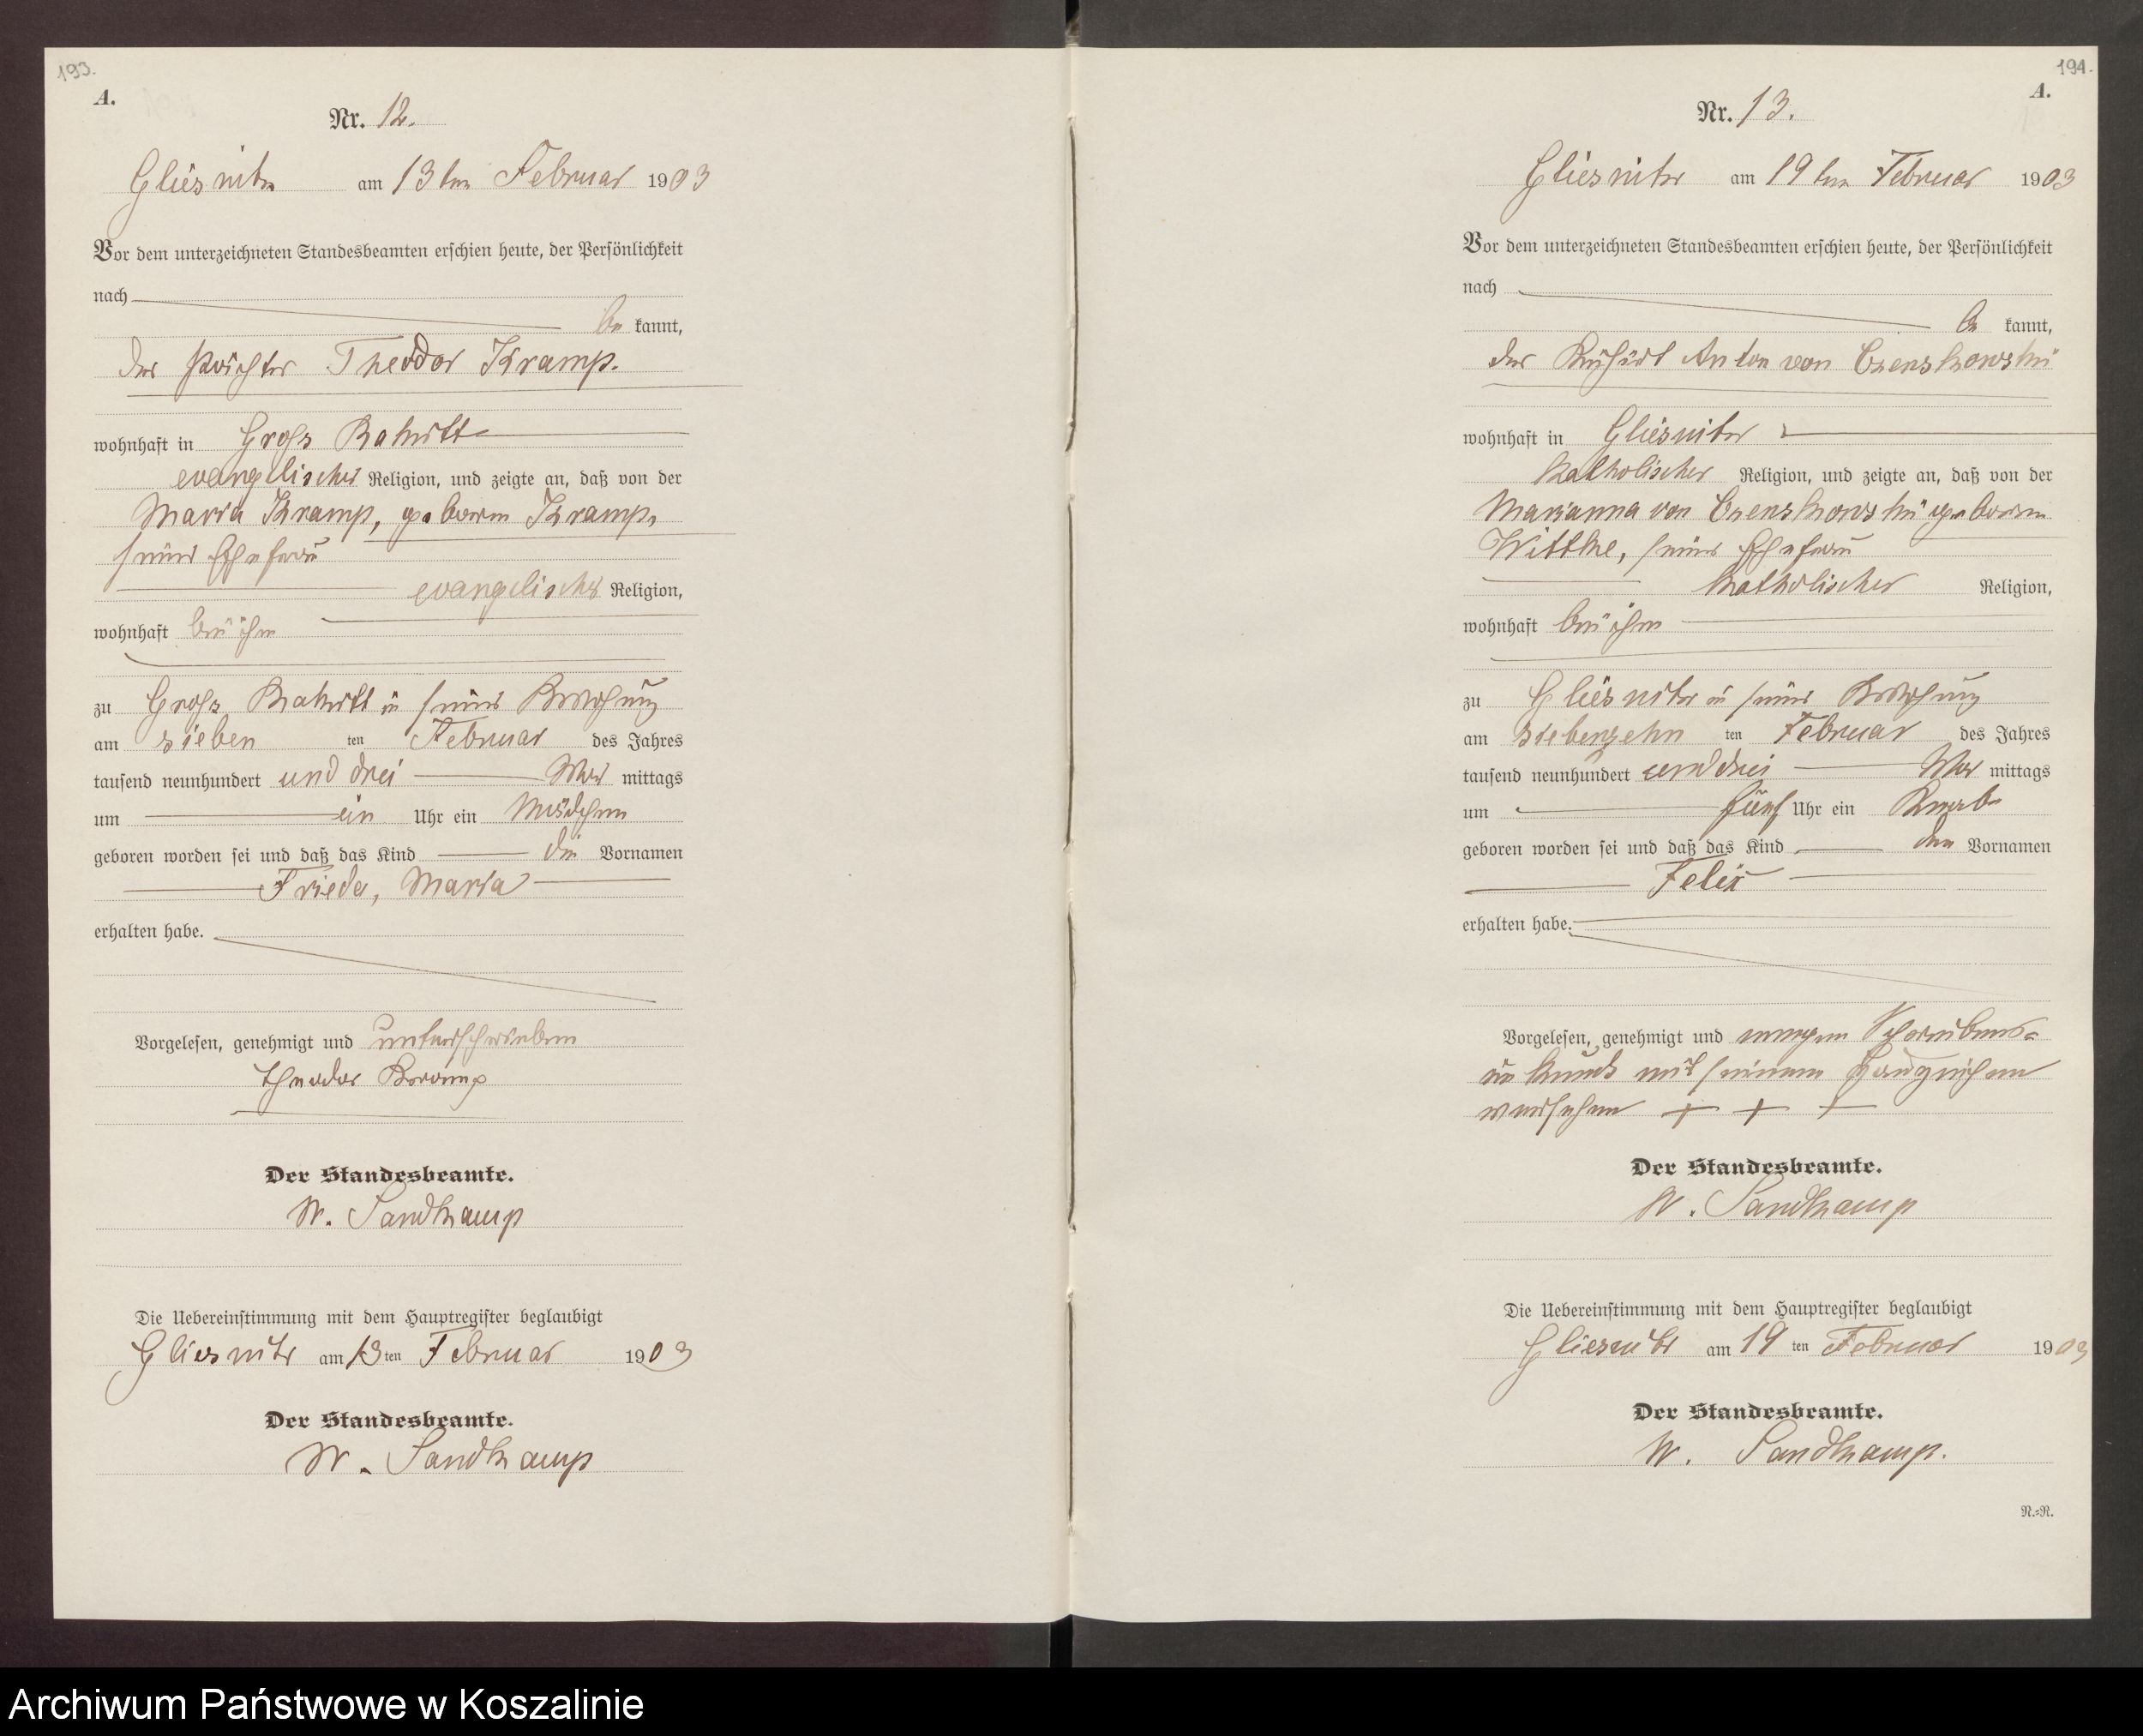 193.
A.
Nr. 12.
Gliesnitz am 13ten Februar 1903
Vor dem unterzeichneten Standesbeamten erschien heute, der Persönlichkeit
nach
be kannt,
der Pächter Theodor Kramp.
wohnhaft in Groß Rakitt
evangelischer Religion, und zeigte an, daß von der
Maria Kramp, geboren Kramp,
seiner Ehefrau
evangelischer Religion,
wohnhaft bei ihm
zu Groß Rakitt in seiner Wohnung
am sieben ten Februar des Jahres
tausend neunhundert und drei Vor mittags
um ein Uhr ein Mädchen
geboren worden sei und daß das Kind die Vornamen
Frieda, Maria
erhalten habe.
Vorgelesen, genehmigt und unterschrieben
Theodor Kramp
Der Standesbeamte.
W. Sandkamp
Die Uebereinstimmung mit dem Hauptregister beglaubigt
Gliesnitz am 13 ten Februar 1903
Der Standesbeamte.
W. Sandkamp
194.
A.
Nr. 13.
Gliesnitz am 19ten Februar 1903
Vor dem unterzeichneten Standesbeamten erschien heute, der Persönlichkeit
nach
be kannt,
der Kuhhirt Anton von Czenskowski
wohnhaft in Gliesnitz
katholischer Religion, und zeigte an, daß von der
Marianna von Czenskowski geboren
Wittke, seiner Ehefrau
katholischer Religion,
wohnhaft bei ihm
zu Gliesnitz in seiner Wohnung
am siebenzehn ten Februar des Jahres
tausend neunhundert und drei Vor mittags
um fünf Uhr ein Knabe
geboren worden sei und daß das Kind den Vornamen
Felix
erhalten habe.
Vorgelesen, genehmigt und wegen Schreibens-
unkunde mit seinem Handzeichen
versehen + + +
Der Standesbeamte.
W. Sandkamp
Die Uebereinstimmung mit dem Hauptregister beglaubigt
Gliesnitz am 19 ten Februar 1903
Der Standesbeamte.
W. Sandkamp.
R.=R.
Archiwum Państwowe w Koszalinie